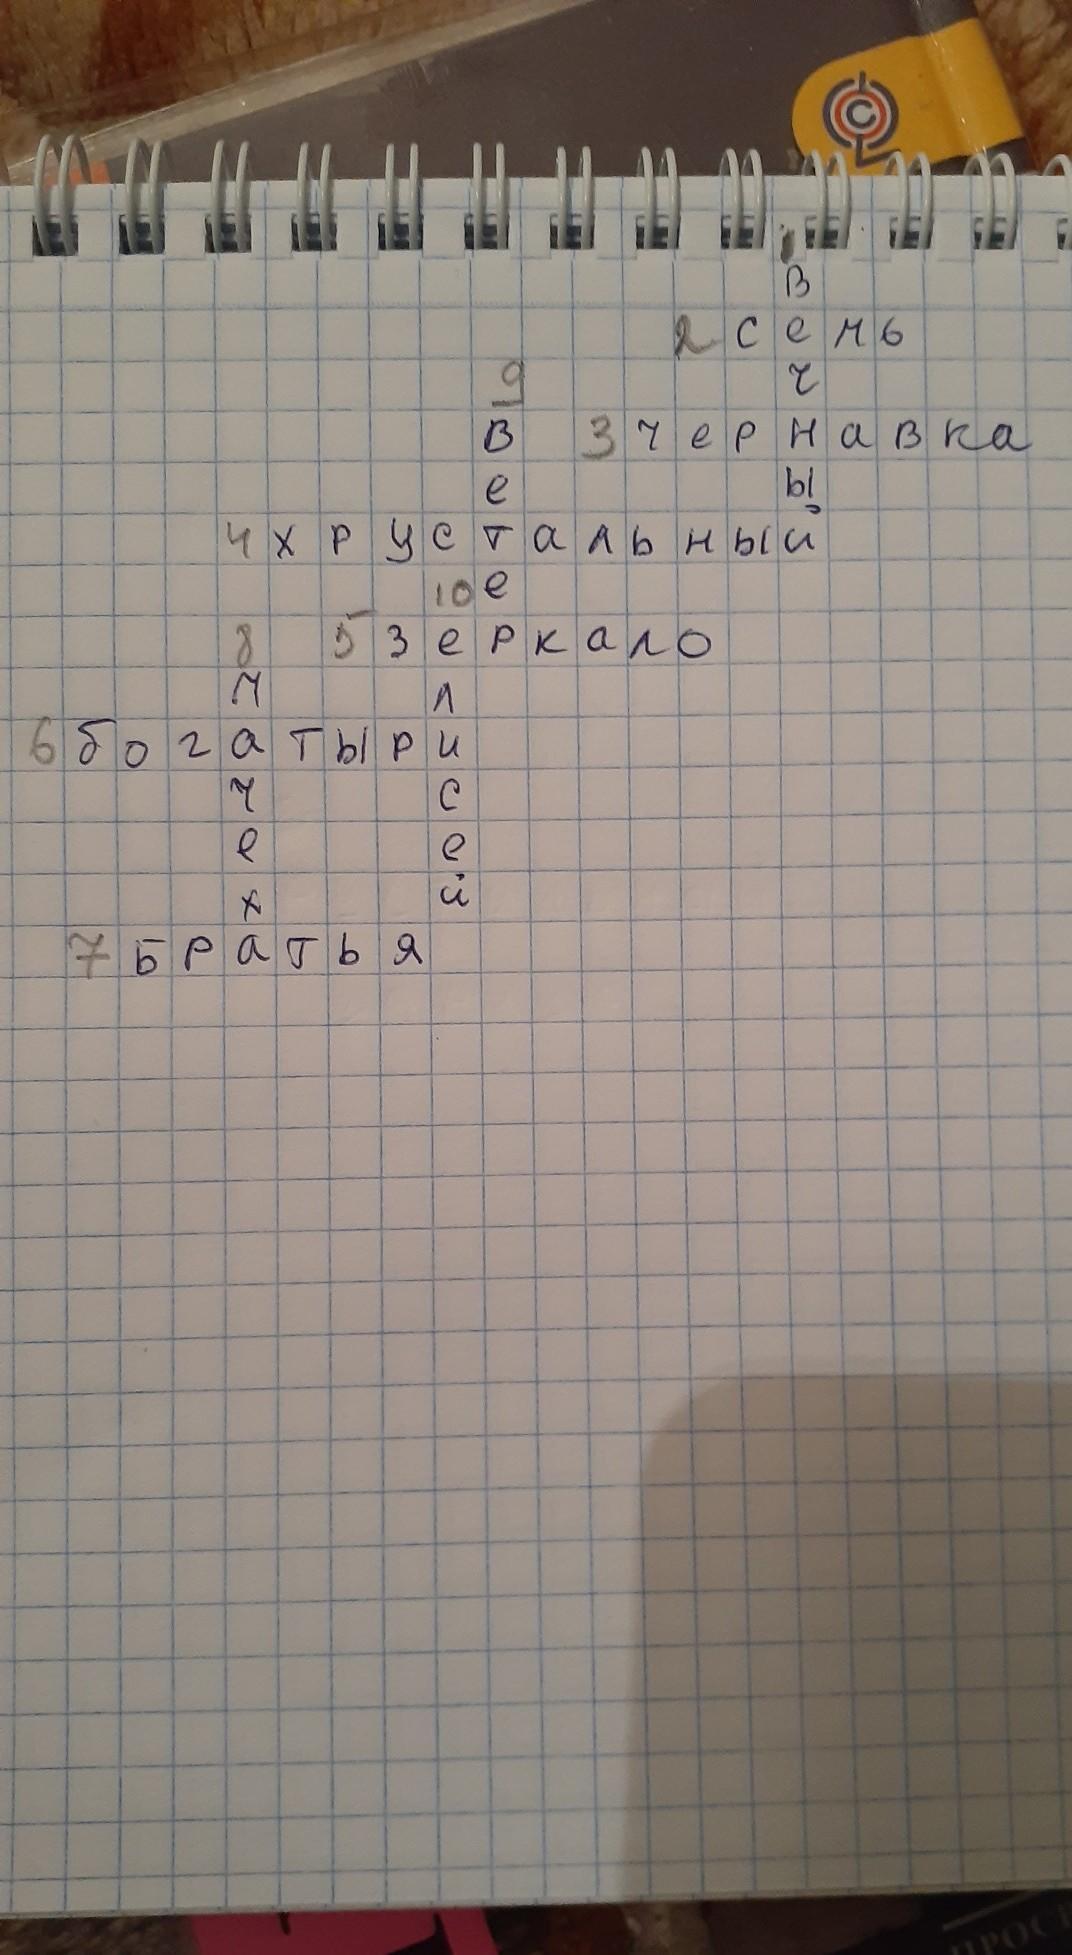 1
в
2 сень
9 ч
в 3 чернавка
е ы
4 хрустальный
10 е
8 5 зеркало
м л
6 богатыри
ч с
е е
х й
7 братья